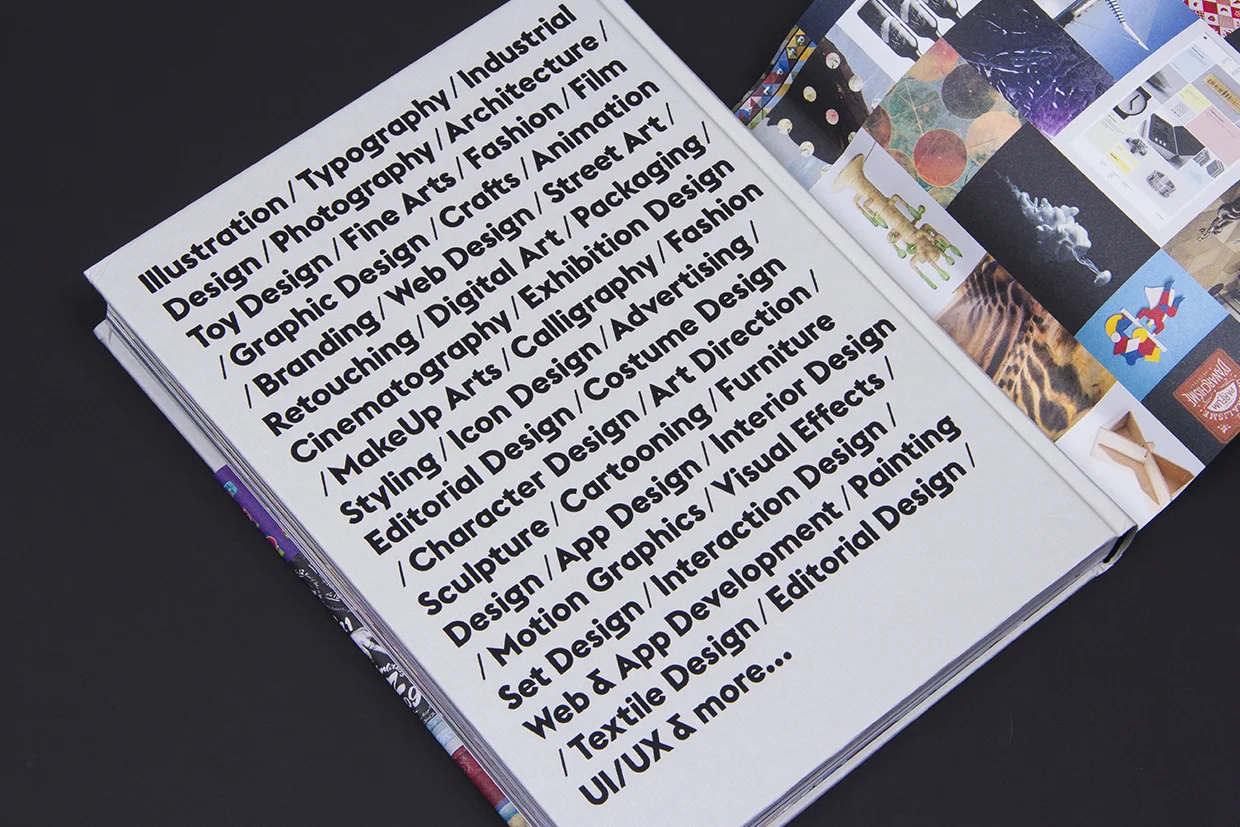 Illustration / Typography / Industrial
Design / Photography / Architecture /
Toy Design / Fine Arts / Fashion / Film
/ Graphic Design / Crafts / Animation
/ Branding / Web Design / Street Art /
Retouching / Digital Art / Packaging /
Cinematography / Exhibition Design
/ MakeUp Arts / Calligraphy / Fashion
Styling / Icon Design / Advertising /
Editorial Design / Costume Design
/ Character Design / Art Direction /
Sculpture / Cartooning / Furniture
Design / App Design / Interior Design
/ Motion Graphics / Visual Effects /
Set Design / Interaction Design /
Web & App Development / Painting
/ Textile Design / Editorial Design /
UI/UX & more...